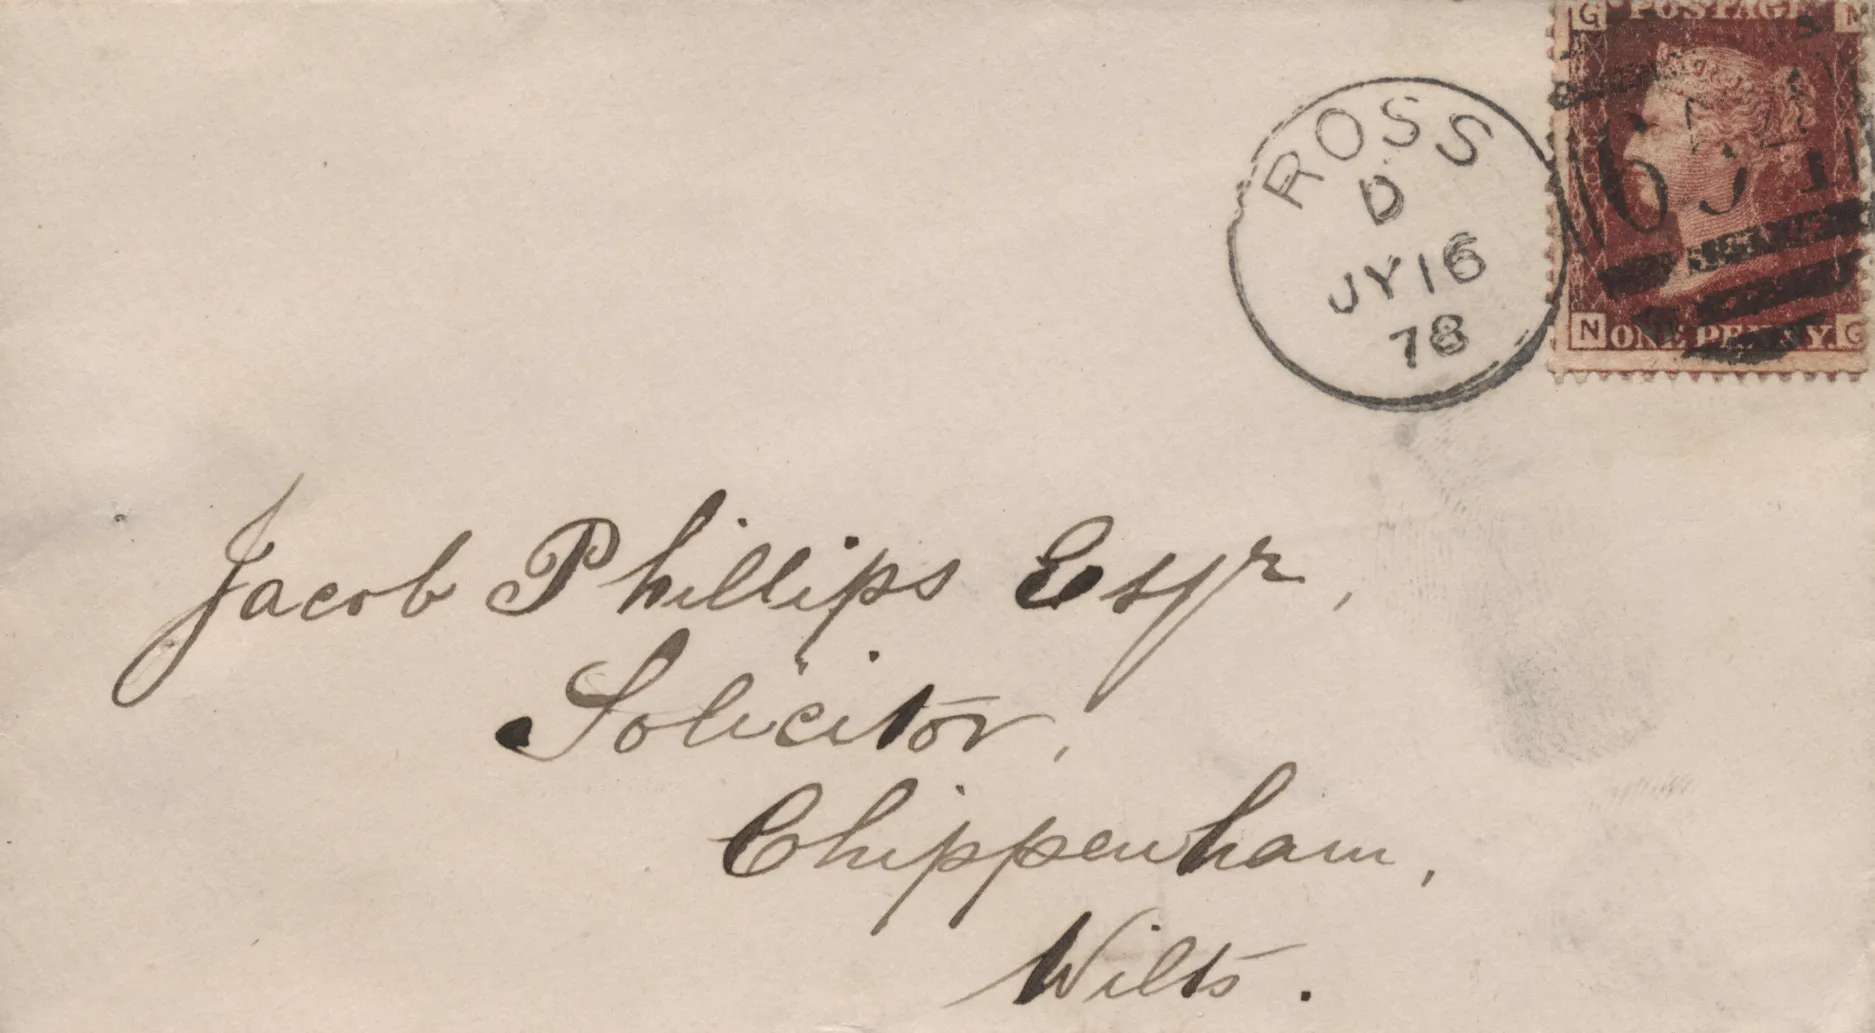 G POSTAGE N
651
N ONE PENNY. G
ROSS
D
JY 16
78
Jacob Phillips Esqr,
Solicitor,
Chippenham,
Wilts.